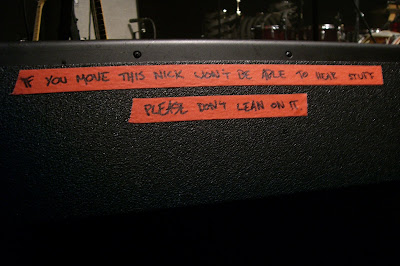 IF YOU MOVE THIS NICK WON'T BE ABLE TO HEAR STUFF
PLEASE DON'T LEAN ON IT